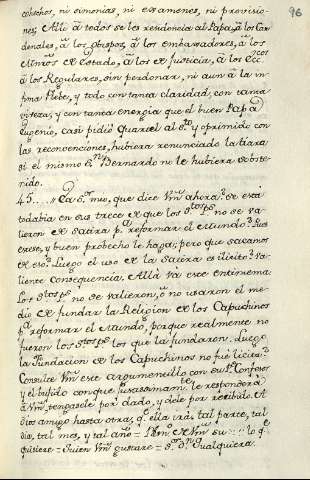 96
cohechos, ni simonias, ni examenes, ni provisio-
nes; Alli à todos se les residencia al Papa, à los Car
denales, à los obispos, à los embaxadores, à los
Minros de estado, à los de Justicia, à los ecc.cos
à los Regulares, sin perdonar, ni aun à la in-
fima Plebe, y todo con tanta claridad, con tanta
viveza, y con tanta energia que el buen Papa
Eugenio, casi pidió Quartel al Sto y oprimido con
las reconvenciones, hubiera renunciado la tiara
si el mismo Sn Bernardo no le hubiera soste-
nido.
45. Ea Sor mio, que dice Vm ahora? se està
todabia en sus trece de que los Stos Ps no se va-
lieron de satira pa reformar el Mundo? Pues
estese, y buen probecho le haga; pero que sacamos
de eso? Luego el uso de la satira es ilicito? va-
liente consequencia. Allà và ese entimema
Los Stos Ps no se valieron, ò no usaron el me-
dio de fundar la Religion de los Capuchinos
pa reformar el Mundo, porque realmente no
fueron los Stos Ps los que la fundaron. Luego
la Fundacion de los Capuchinos no fué licita?
Consulte Vm este argumentillo con su Pe Confesor
y el bufido conque le responderà
à Vm tengasele por dado, y dele por recibido. A
dios amigo hasta otra; qe ella irà tal parte, tal
dia, tal mes, y tal año = de Vm su = lo qe
quisiere = Quien Vm gustare = Sor Dn Qualquiera.